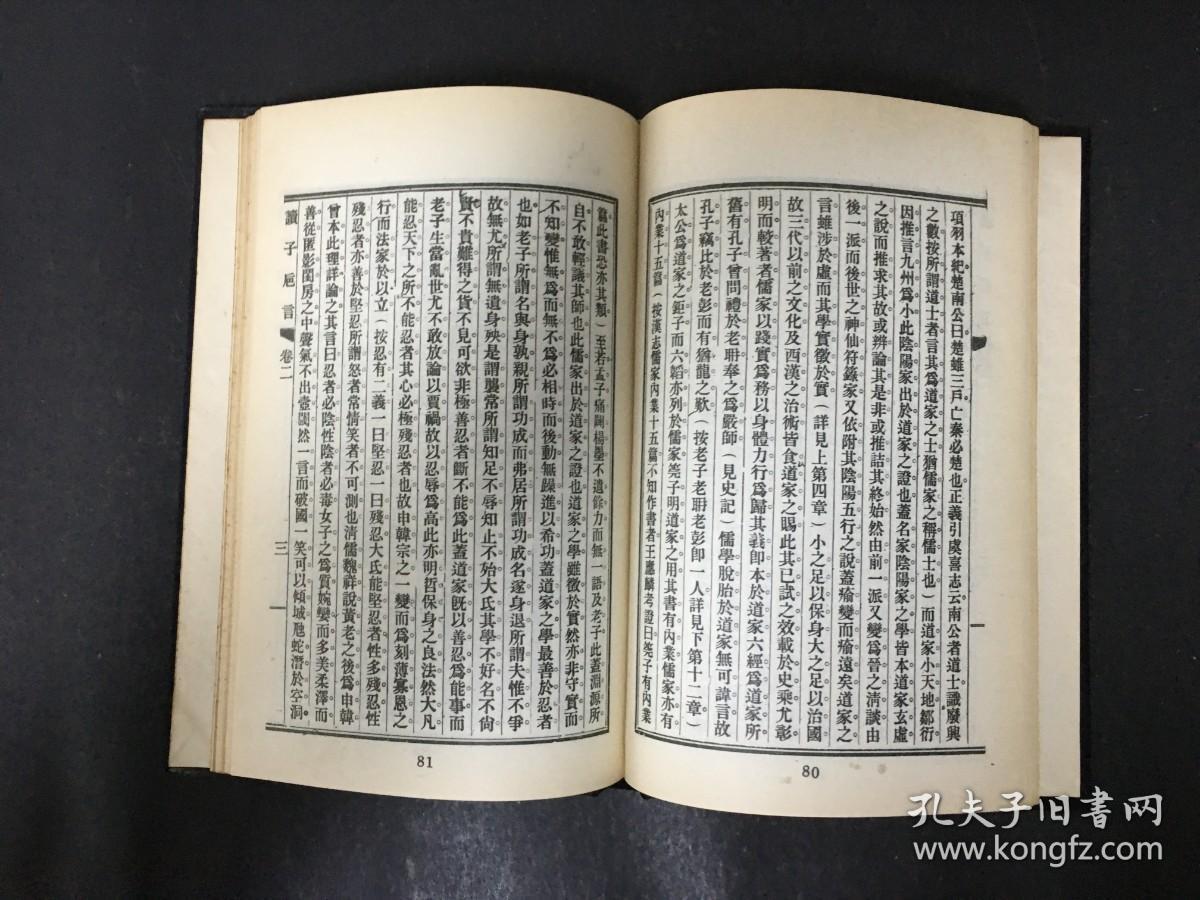 項羽本紀楚南公曰楚雖三戶亡秦必楚也正義引虞喜志云南公者道士識廢興
之數按所謂道士者言其爲道家之士猶儒家之稱儒士也）而道家小天地鄒衍
因推言九州爲小此陰陽家出於道家之證也蓋名家陰陽家之學皆本道家玄虛
之說而推求其故或辨論其是非或推詰其終始然由前一派又變爲晉之淸談由
後一派而後世之神仙符籙家又依附其陰陽五行之說蓋瘉變而瘉遠矣道家之
言雖涉於虛而其學實徵於實（詳見上第四章）小之足以保身大之足以治國
故三代以前之文化及西漢之治術皆食道家之賜此其已試之效載於史乘尤彰
明而較著者儒家以踐實爲務以身體力行爲歸其義卽本於道家六經爲道家所
舊有孔子曾問禮於老聃奉之爲嚴師（見史記）儒學脫胎於道家無可諱言故
孔子竊比於老彭而有猶龍之歎（按老子老聃老彭卽一人詳見下第十二章）
太公爲道家之鉅子而六韜亦列於儒家筦子明道家之用其書有內業儒家亦有
內業十五篇（按漢志儒家內業十五篇不知作書者王應麟考證曰筦子有內業
80
篇此書恐亦其類）至若孟子痛闢楊墨不遺餘力而無一語及老子此蓋淵源所
自不敢輕議其師也此儒家出於道家之證也道家之學雖徵於實然亦非守實而
不知變惟無爲而無不爲必相時而後動無躁進以希功蓋道家之學最善於忍者
也如老子所謂名與身孰親所謂功成而弗居所謂功成名遂身退所謂夫惟不爭
故無尤所謂無遺身殃是謂襲常所謂知足不辱知止不殆大氐其學不好名不尙
賢不貴難得之貨不見可欲非極善忍者斷不能爲此蓋道家旣以善忍爲能事而
老子生當亂世尤不敢放論以賈禍故以忍辱爲高此亦明哲保身之良法然大凡
能忍天下之所不能忍者其心必極殘忍者也故申韓宗之一變而爲刻薄寡恩之
行而法家於以立　按忍有二義一曰堅忍一曰殘忍大氐能堅忍者性多殘忍性
殘忍者亦善於堅忍所謂怒者常情笑者不可測也淸儒魏祥說黃老之後爲申韓
曾本此理詳論之其言曰忍者必陰性陰者必毒女子之爲質婉孌而多美柔澤而
善從匿影閨房之中聲氣不出壼闥然一言而破國一笑可以傾城虺蛇潛於空洞
讀子巵言　卷二　三
81
孔夫子旧书网
www.kongfz.com